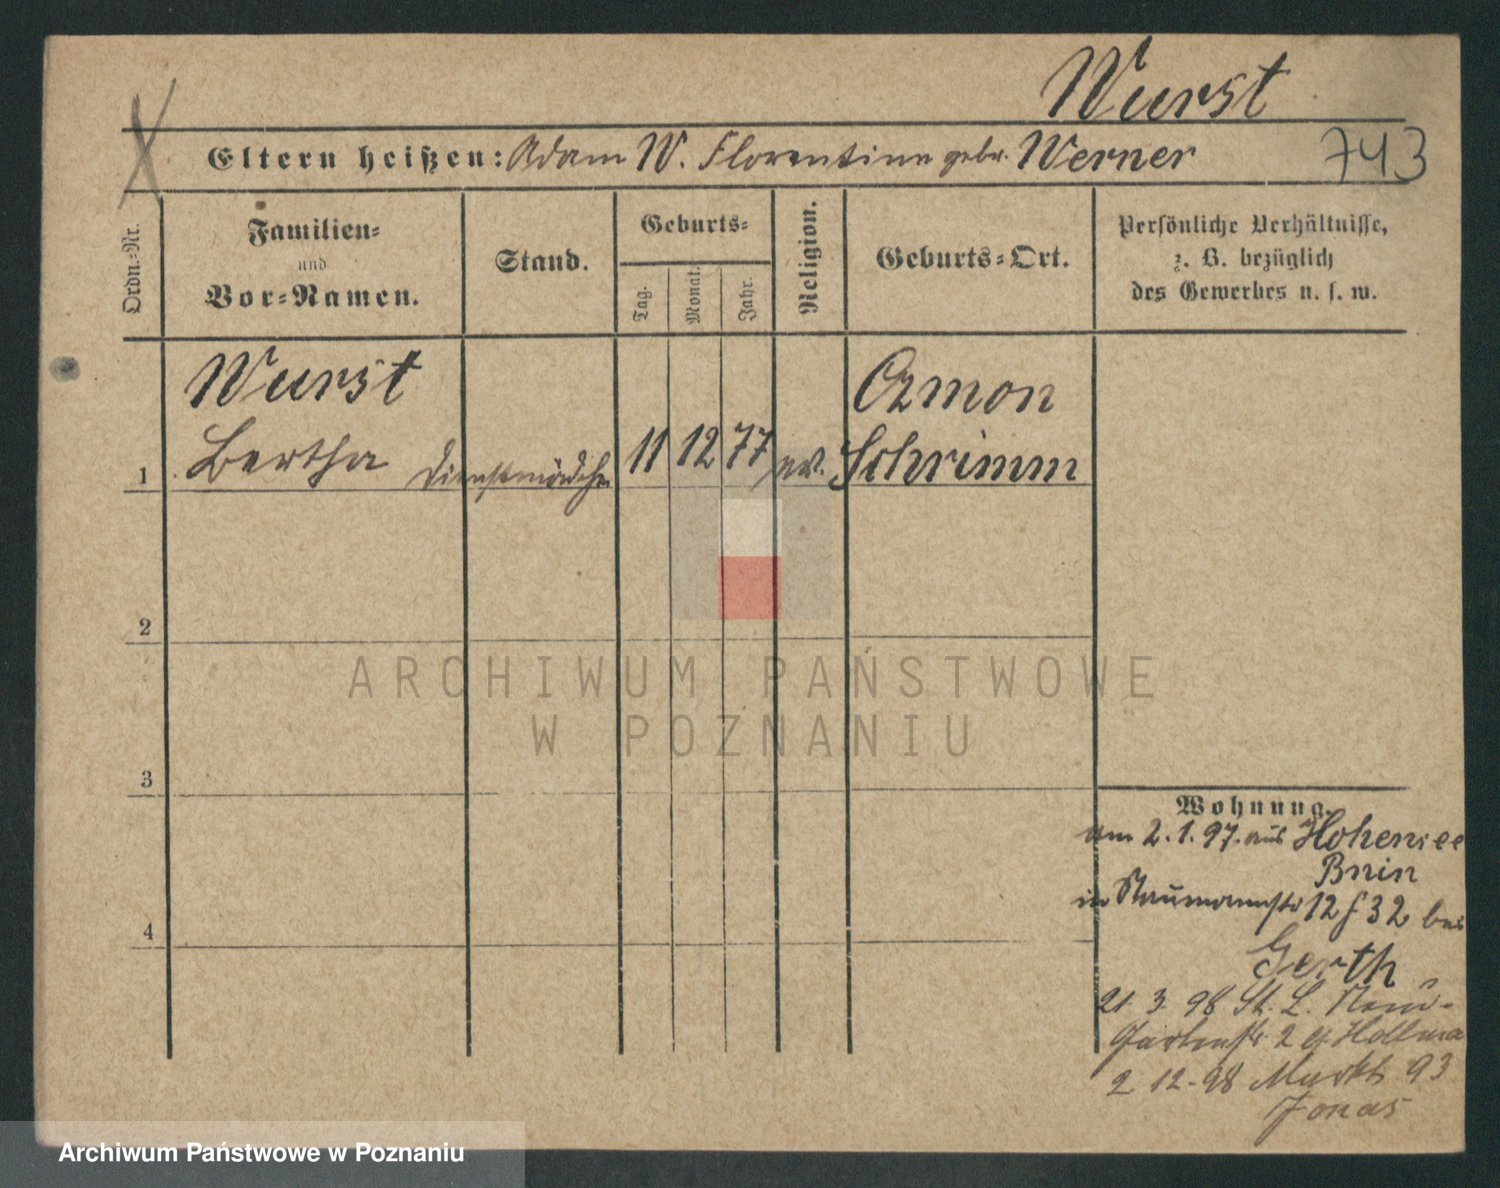 Wurst
Eltern heißen: Adam W. Florentine gebr. Werner
743
Ordn.-Nr.
Familien-
und
Vor-Namen.
Stand.
Geburts-
Tag.
Monat.
Jahr.
Religion.
Geburts-Ort.
Persönliche Verhältnisse,
z. B. bezüglich
des Gewerbes u. s. w.
Wurst
Ozmon
1 Bertha Dienstmädchen 11 12 77 ev. Schrimm
2
ARCHIWUM PAŃSTWOWE
W POZNANIU
3
Wohnung.
am 2.1.97. aus Hohensee
Bnin
in Naumannstr 12 f 32 bei
Gerth
21 3 98 St. L. Neue-
Gartenstr 2
2 12-98 Markt 93
Jonas
4
Archiwum Państwowe w Poznaniu